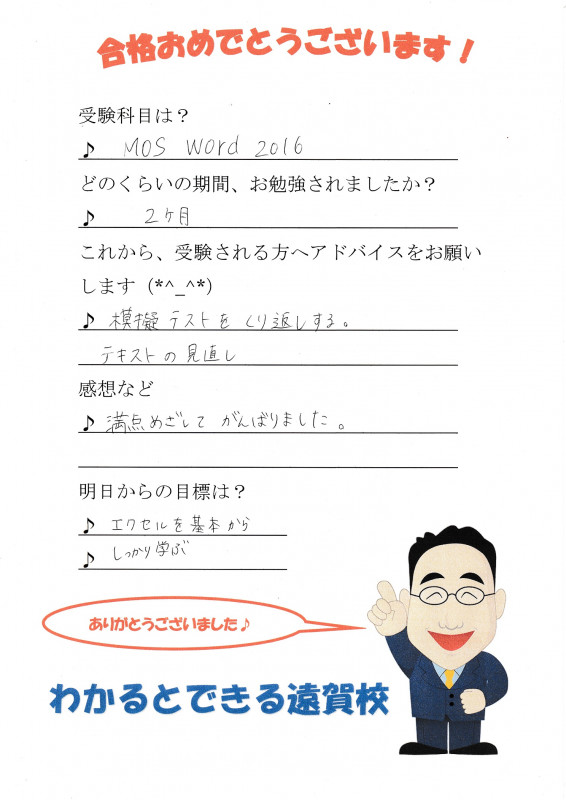 合格おめでとうございます！
受験科目は？
♪ MOS Word 2016
どのくらいの期間、お勉強されましたか？
♪ 2ヶ月
これから、受験される方へアドバイスをお願い
します (*^_^*)
♪ 模擬テストをくり返しする。
テキストの見直し
感想など
♪ 満点めざしてがんばりました。
明日からの目標は？
♪ エクセルを基本から
♪ しっかり学ぶ
ありがとうございました♪
わかるとできる遠賀校